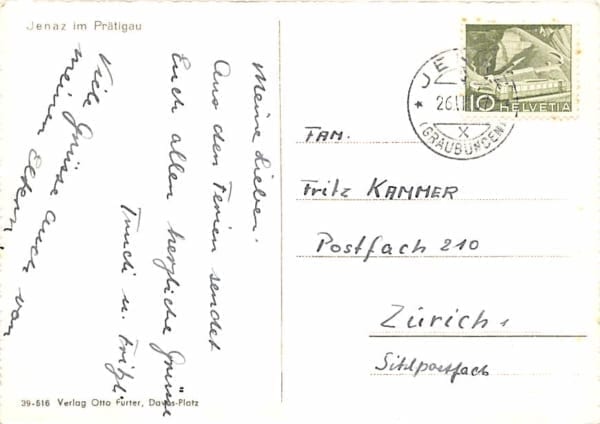 Jenaz im Prätigau
Meine Lieben.
Aus den Ferien sendet
Euch allen herzliche Grüsse
Trudi u. Fritzli.
Viele Grüsse auch von
meinen Eltern
HELVETIA
10
JE
26.
X
(GRAUBÜNDEN)
FAM.
Fritz KAMMER
Postfach 210
Zürich 1
Sihlpostfach
39-516 Verlag Otto Furter, Davos-Platz